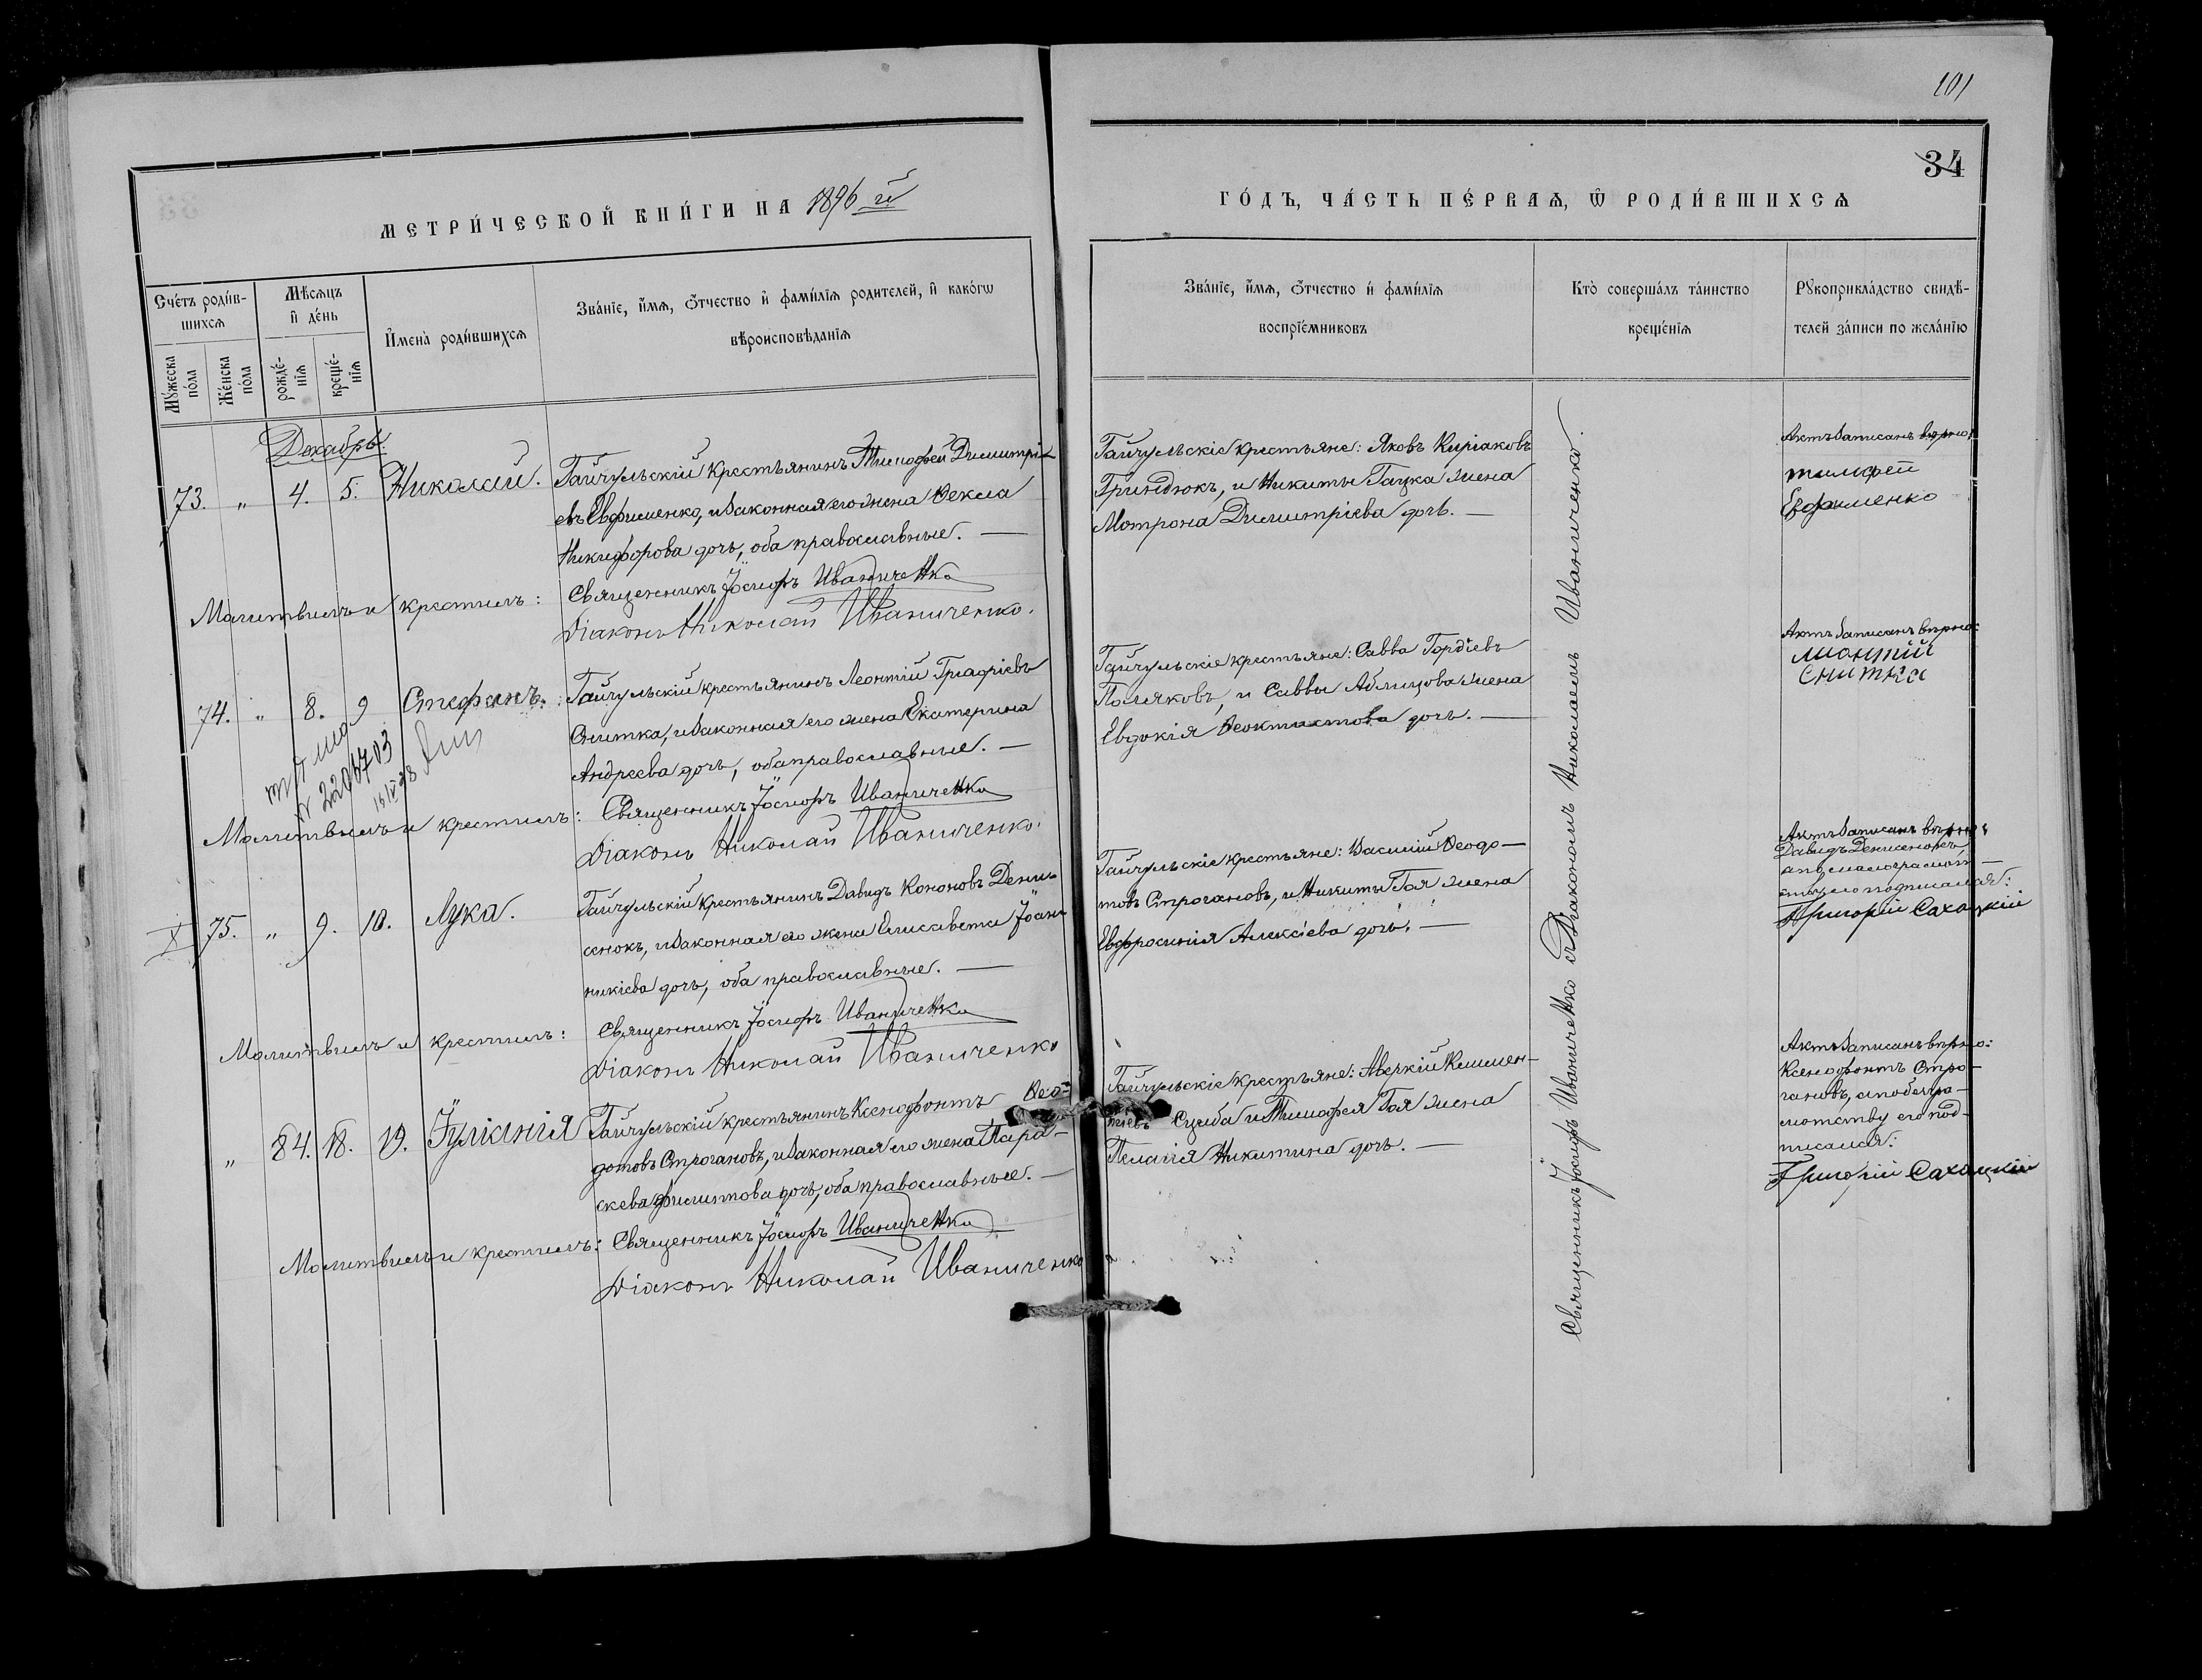 101
34
МЕТРИ́ЧЕСКОЙ КНИ́ГИ НА 1896 й
ГО́ДЪ, ЧА́СТЬ ПЕ́РВАѦ, Ѿ РОДИ́ВШИХСѦ
Сче́тъ роди́в-
шихсѧ
Мꙋ́жеска по́ла
Же́нска по́ла
Мѣ́сѧцъ
и҆ де́нь
рожде́-
нїѧ
креще́-
нїѧ
И҆мена̀ роди́вшихсѧ
Зва́нїе, и҆́мѧ, ѻ҆́тчество и҆ фами́лїѧ роди́телей, и҆ како́гѡ
вѣроисповѣ́данїѧ
Зва́нїе, и҆́мѧ, ѻ҆́тчество и҆ фами́лїѧ
воспрїе́мниковъ
Кто̀ соверша́лъ та́инство
креще́нїѧ
Рꙋкоприкла́дство свидѣ́-
телей за́писи по жела́нїю
Декабрь.
73. „ 4. 5. Николай.
Гайчульскій крестьянинъ Тимофей Димитрі-
евъ Евфименко, и законная его жена Ѳекла
Никифорова дочь, оба православные. —
Молитвилъ и крестилъ: Священникъ Іосифъ Иваниченко
Діаконъ Николай Иваниченко.
Гайчульскіе крестьяне: Яковъ Киріаковъ
Гриндюкъ, и Никиты Гацка жена
Мотрона Димитріева дочь. —
Актъ записанъ вѣрно:
тимофей
Ефименко
74. „ 8. 9 Стефанъ.
Гайчульскій крестьянинъ Леонтій Гр
Снитка, и законная его жена Екатерина
Андреева дочь, оба православные. —
№ 2206703
Молитвилъ и крестилъ: Священникъ Іосифъ Иваниченко
Діаконъ Николай Иваниченко.
Гайчульскіе крестьяне: Савва Гордіевъ
Поляковъ, и Саввы Аблицова жена
Евдокія Ѳеоктистова дочь. —
Актъ записанъ вѣрно:
лионтий
Снитка
X 75. „ 9. 10. Лука.
Гайчульскій крестьянинъ Давидъ Кононовъ Дени-
сенокъ, и законная его жена Елисавета Іоан-
никіева дочь, оба православные. —
Молитвилъ и крестилъ: Священникъ Іосифъ Иваниченко
Діаконъ Николай Иваниченко
Гайчульскіе крестьяне: Василій Ѳеодо-
товъ Строгановъ, и Никиты Гоя жена
Евфросинія Алексіева дочь. —
Актъ записанъ вѣрно:
Давидъ Денисенокъ
а по малограмот-
ству его подписался:
Григорій Сахацкій
„ 84. 18. 19. Іуліанія
Гайчульскій крестьянинъ Ксенофонтъ Ѳео-
дотовъ Строгановъ, и законная его жена Пара-
скева Филиппова дочь, оба православные. —
Молитвилъ и крестилъ: Священникъ Іосифъ Иваниченко
Діаконъ Николай Иваниченко
Гайчульскіе крестьяне: Аверкій Климен-
тіевъ Сцыба и Тимофея Гоя жена
Пелагія Никитина дочь. —
Актъ записанъ вѣрно:
Ксенофонтъ Стро-
гановъ, а по безгра-
мотству его под-
писался:
Григорій Сахацкій
Священникъ Іосифъ Иваниченко съ Діакономъ Николаемъ Иваниченко.